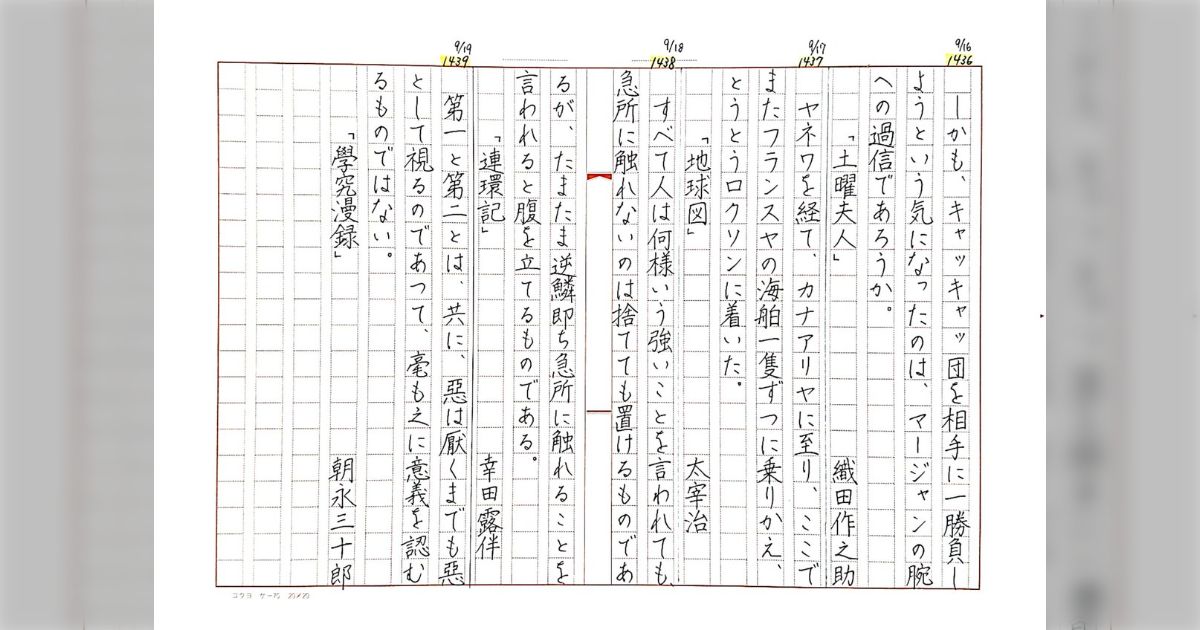 9/16
1436
しかも、キャッキャッ団を相手に一勝負し
ようという気になったのは、マージャンの腕
への過信であろうか。
「土曜夫人」 織田作之助
9/17
1437
ヤネワを経て、カナアリヤに至り、ここで
またフランスヤの海舶一隻ずつに乗りかえ、
とうとうロクソンに着いた。
「地球図」 太宰治
9/18
1438
すべて人は何様いう強いことを言われても、
急所に触れないのは捨てても置けるものであ
るが、たまたま逆鱗即ち急所に触れることを
言われると腹を立てるものである。
「連環記」 幸田露伴
9/19
1439
第一と第二とは、共に、惡は厭くまでも惡
として視るのであつて、毫も之に意義を認む
るものではない。
「學究漫録」 朝永三十郎
コクヨ ケー75 20×20